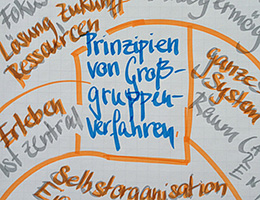 Lösung Zukunft
Ressourcen
Prinzipien
von Groß-
gruppen-
verfahren
ganze
System
Raum
Erleben
ist zentral
Selbstorganisation